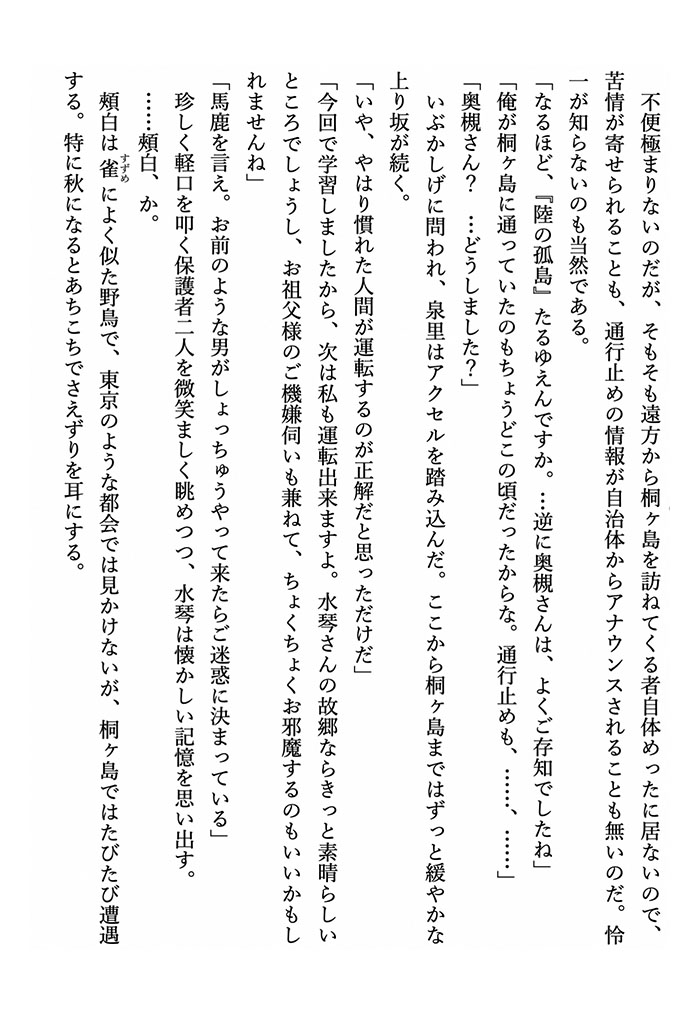 不便極まりないのだが、そもそも遠方から桐ヶ島を訪ねてくる者自体めったに居ないので、
苦情が寄せられることも、通行止めの情報が自治体からアナウンスされることも無いのだ。怜
一が知らないのも当然である。
「なるほど、『陸の孤島』たるゆえんですか。…逆に奥槻さんは、よくご存知でしたね」
「俺が桐ヶ島に通っていたのもちょうどこの頃だったからな。通行止めも、……、……」
「奥槻さん？　…どうしました？」
　いぶかしげに問われ、泉里はアクセルを踏み込んだ。ここから桐ヶ島まではずっと緩やかな
上り坂が続く。
「いや、やはり慣れた人間が運転するのが正解だと思っただけだ」
「今回で学習しましたから、次は私も運転出来ますよ。水琴さんの故郷ならきっと素晴らしい
ところでしょうし、お祖父様のご機嫌伺いも兼ねて、ちょくちょくお邪魔するのもいいかもし
れませんね」
「馬鹿を言え。お前のような男がしょっちゅうやって来たらご迷惑に決まっている」
　珍しく軽口を叩く保護者二人を微笑ましく眺めつつ、水琴は懐かしい記憶を思い出す。
　……頰白、か。
　頰白は雀すずめによく似た野鳥で、東京のような都会では見かけないが、桐ヶ島ではたびたび遭遇
する。特に秋になるとあちこちでさえずりを耳にする。